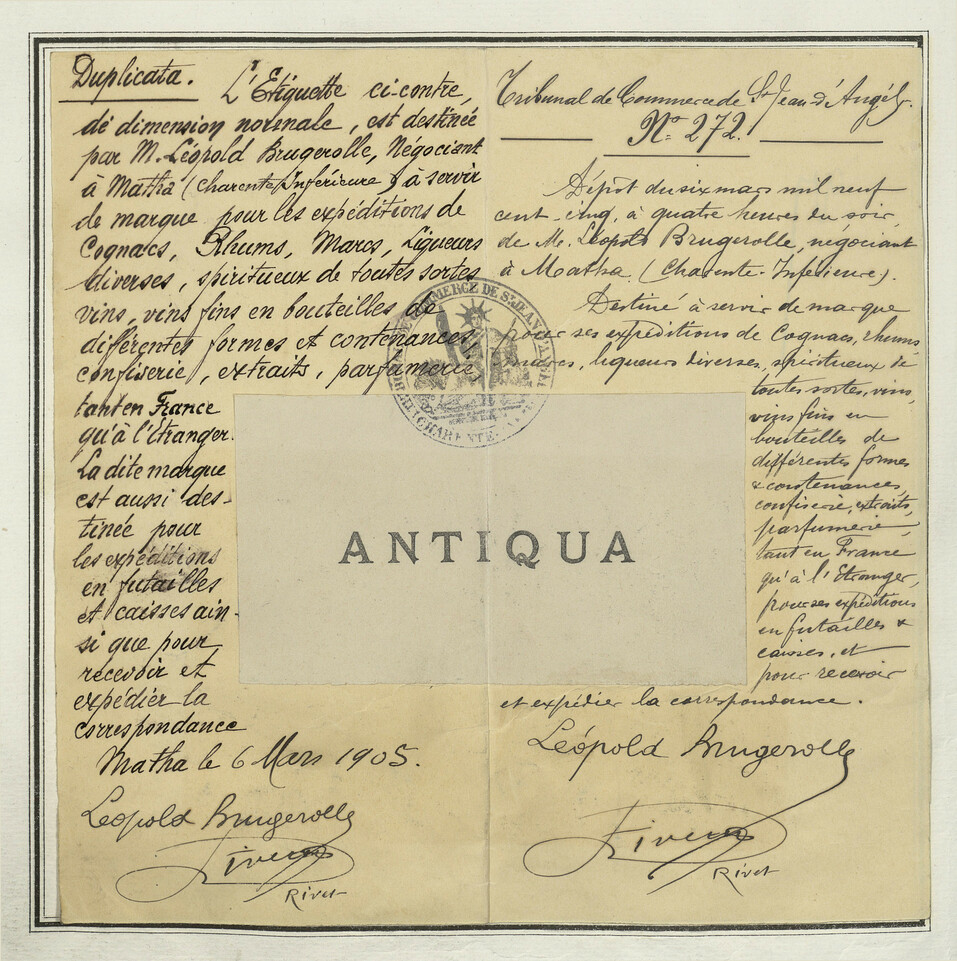 Duplicata. L'Etiquette ci-contre,
de dimension normale, est destinée
par M. Léopold Brugerolle, Négociant
à Matha (Charente Inférieure) à servir
de marque pour les expéditions de
Cognacs, Rhums, Marcs, Liqueurs
diverses, spiritueux de toutes sortes
vins, vins fins en bouteilles de
différentes formes et contenances,
confiserie, extraits, parfumerie
tant en France
qu'à l'Etranger.
La dite marque
est aussi des-
tinée pour
les expéditions
en futailles
et caisses ain-
si que pour
recevoir et
expédier la
correspondance
Matha le 6 Mars 1905.
Léopold Brugerolle
Rivet
Tribunal de Commerce de St Jean-d'Angély.
No 272.
Dépôt du six mars mil neuf
cent-cinq, à quatre heures du soir
de M. Léopold Brugerolle, négociant
à Matha (Charente-Inférieure).
Destiné à servir de marque
pour ses expéditions de Cognacs, rhums
marcs, liqueurs diverses, spiritueux de
toutes sortes, vins,
vins fins en
bouteilles de
différentes formes
& contenances
confiserie, extraits,
parfumerie
tant en France
qu'à l'Etranger,
pour ses expéditions
en futailles &
caisses, et
pour recevoir
et expédier la correspondance.
Léopold Brugerolle
Rivet
COMMERCE DE ST JEAN D'ANGÉLY
CHARENTE
ANTIQUA